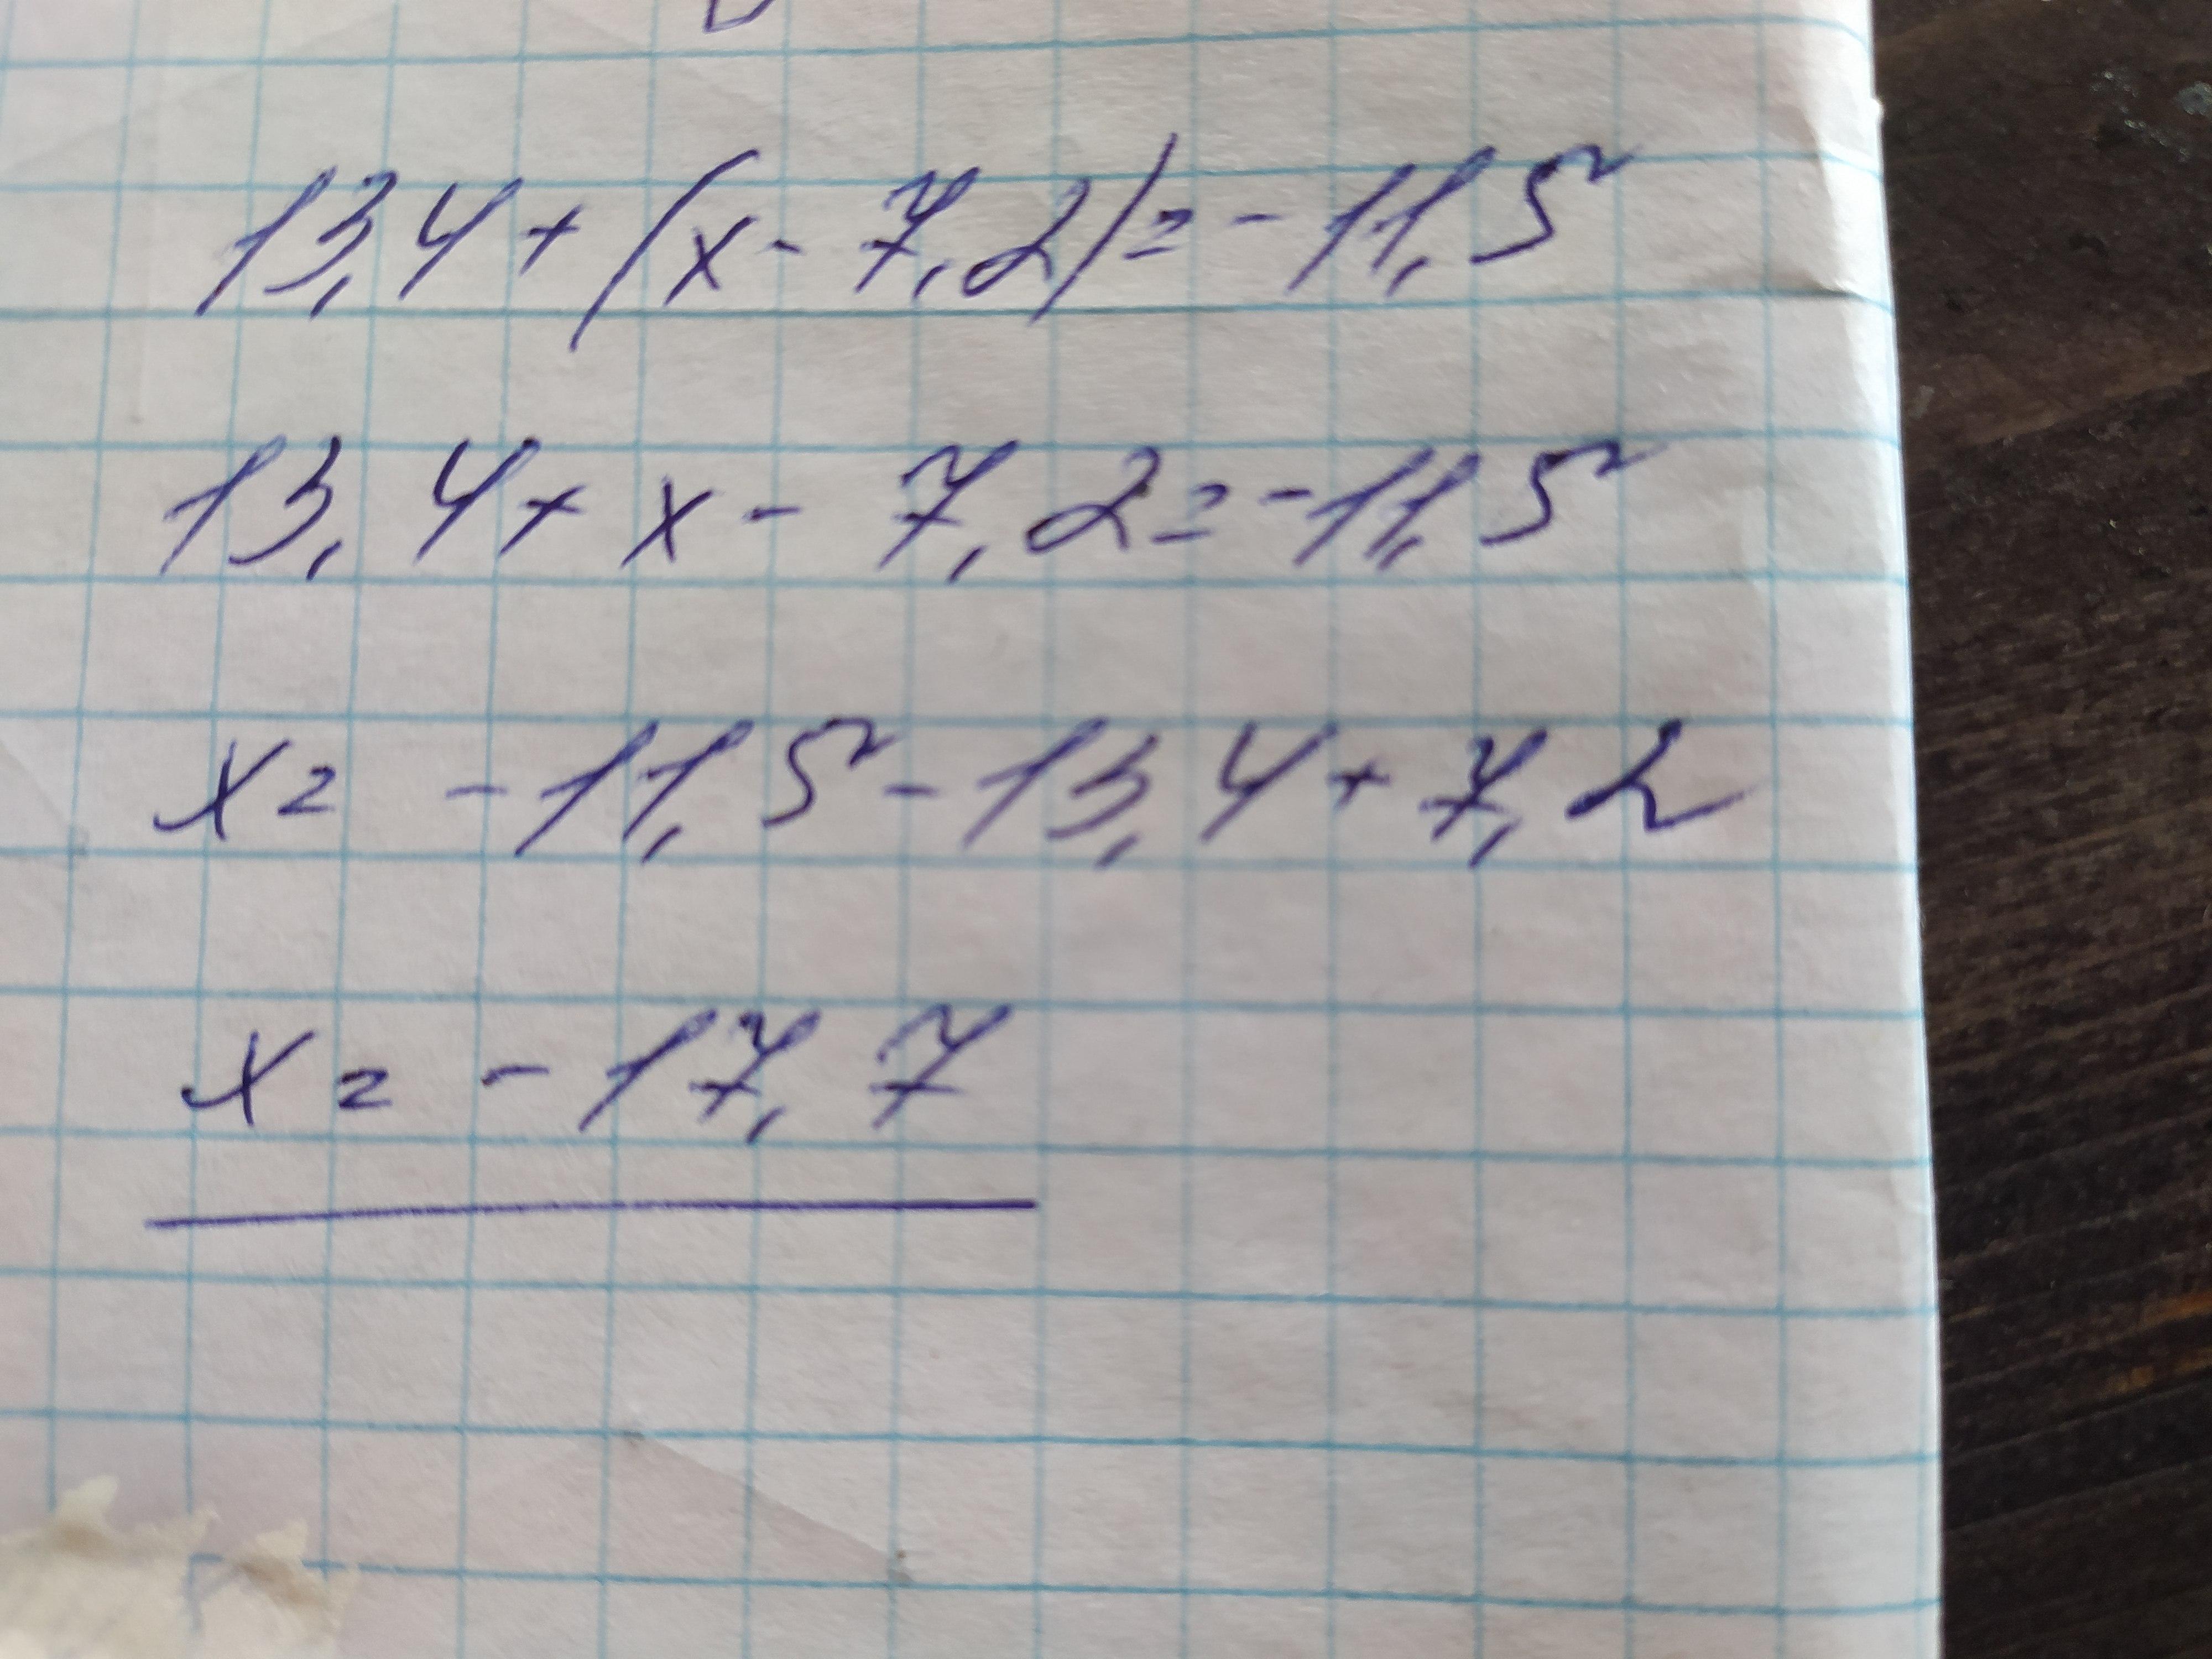 13,4 + (x - 7,2) = -11,5
13,4 + x - 7,2 = -11,5
x = -11,5 - 13,4 + 7,2
x = -17,7